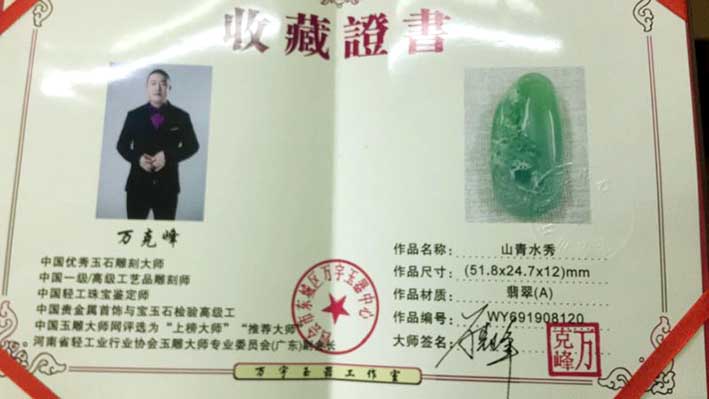 收藏證書
万克峰
中国优秀玉石雕刻大师
中国一级/高级工艺品雕刻师
中国轻工珠宝鉴定师
中国贵金属首饰与宝玉石检验高级工
中国玉雕大师网评选为“上榜大师”“推荐大师”
河南省轻工业行业协会玉雕大师专业委员会(广东)副会长
东城区万宇玉器中心
作品名称: 山青水秀
作品尺寸: (51.8x24.7x12)mm
作品材质: 翡翠(A)
作品编号: WY691908120
大师签名:
万克峰
万宇玉器工作室